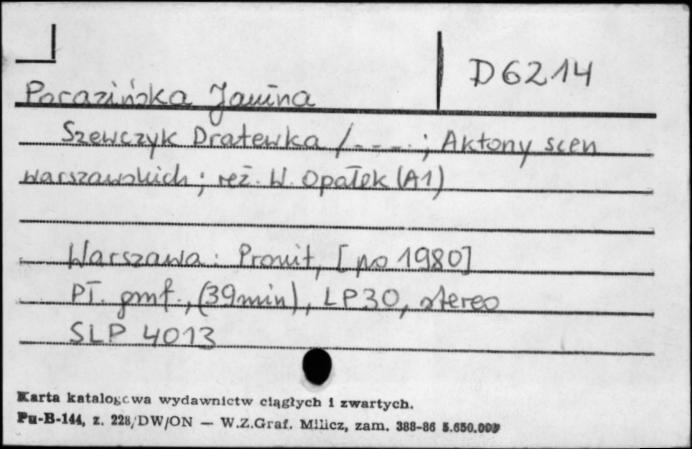 D 6214
Porazińska Janina
Szewczyk Dratewka / - - - . ; Aktorzy scen
warszawskich ; reż. W. Opałek (A1)
Warszawa : Pronit, [po 1980]
Pł. gmf., (39 min), LP 30, stereo
SLP 4013
Karta katalogowa wydawnictw ciągłych i zwartych.
Pu-B-144, z. 228/DW/ON — W.Z.Graf. Milicz, zam. 388-86 5.650.000